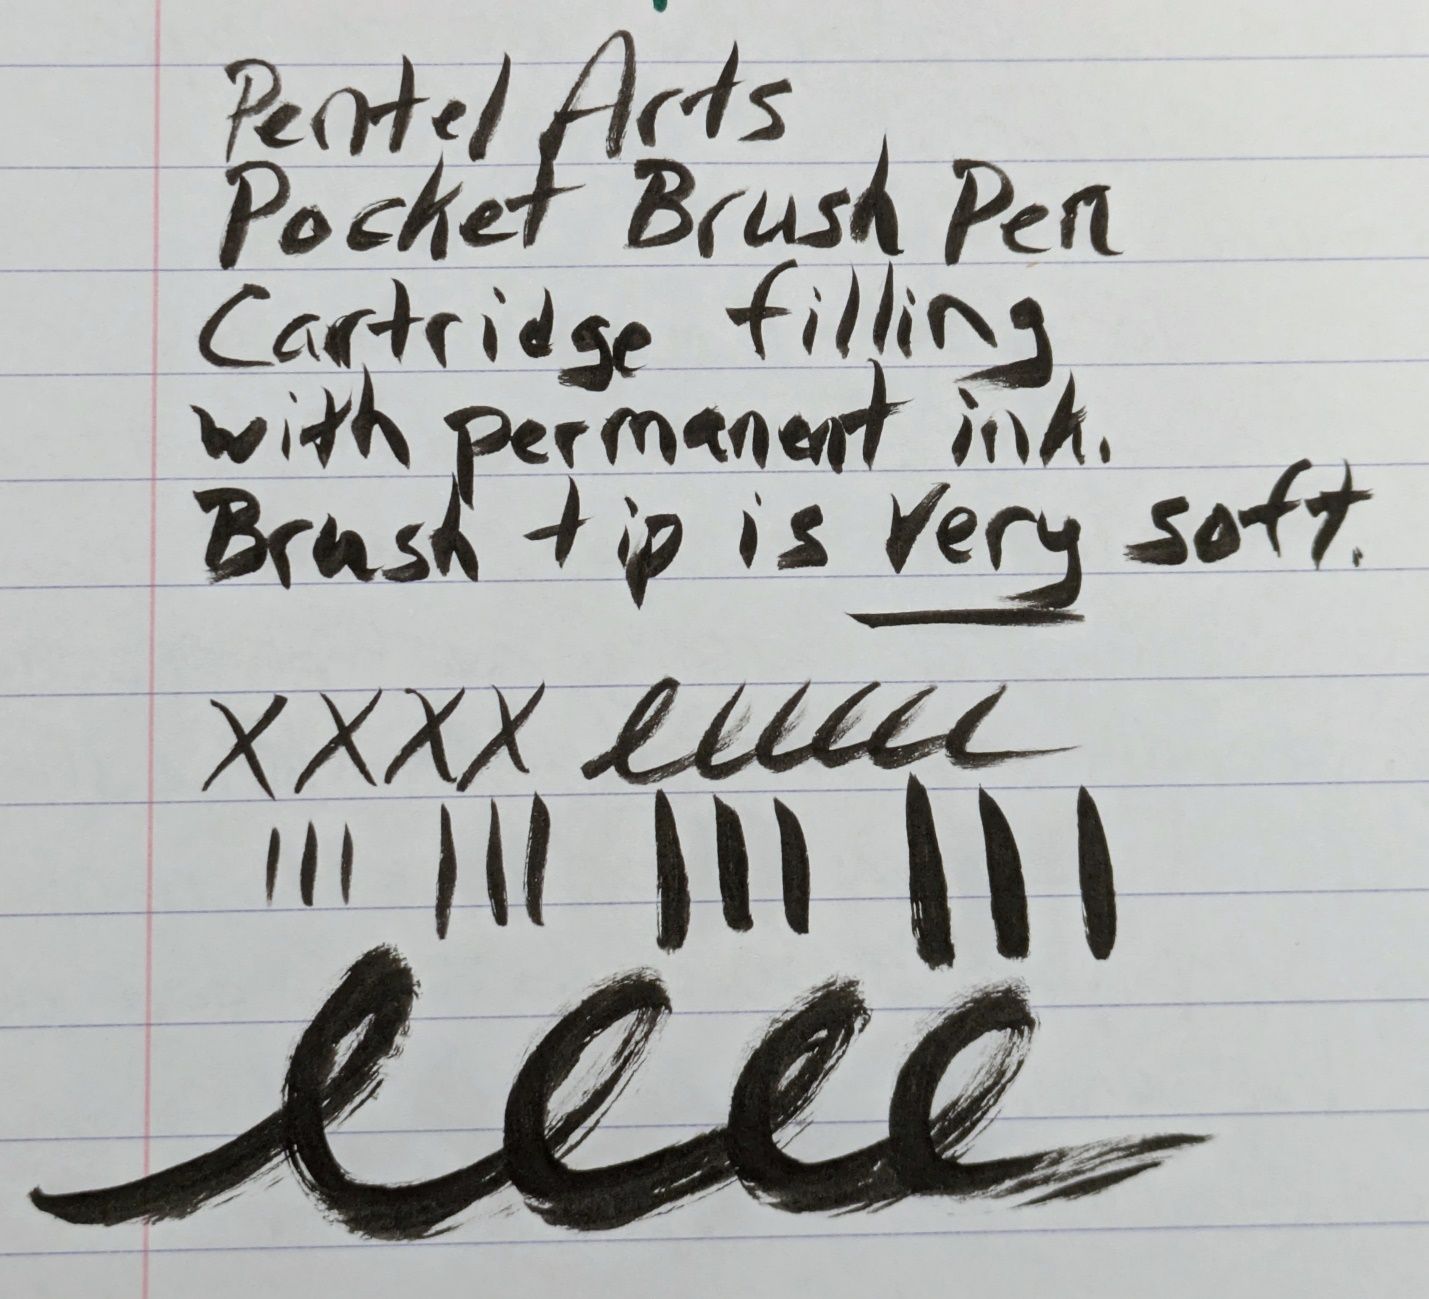 Pentel Arts
Pocket Brush Pen
Cartridge filling
with permanent ink.
Brush tip is very soft.
XXXX